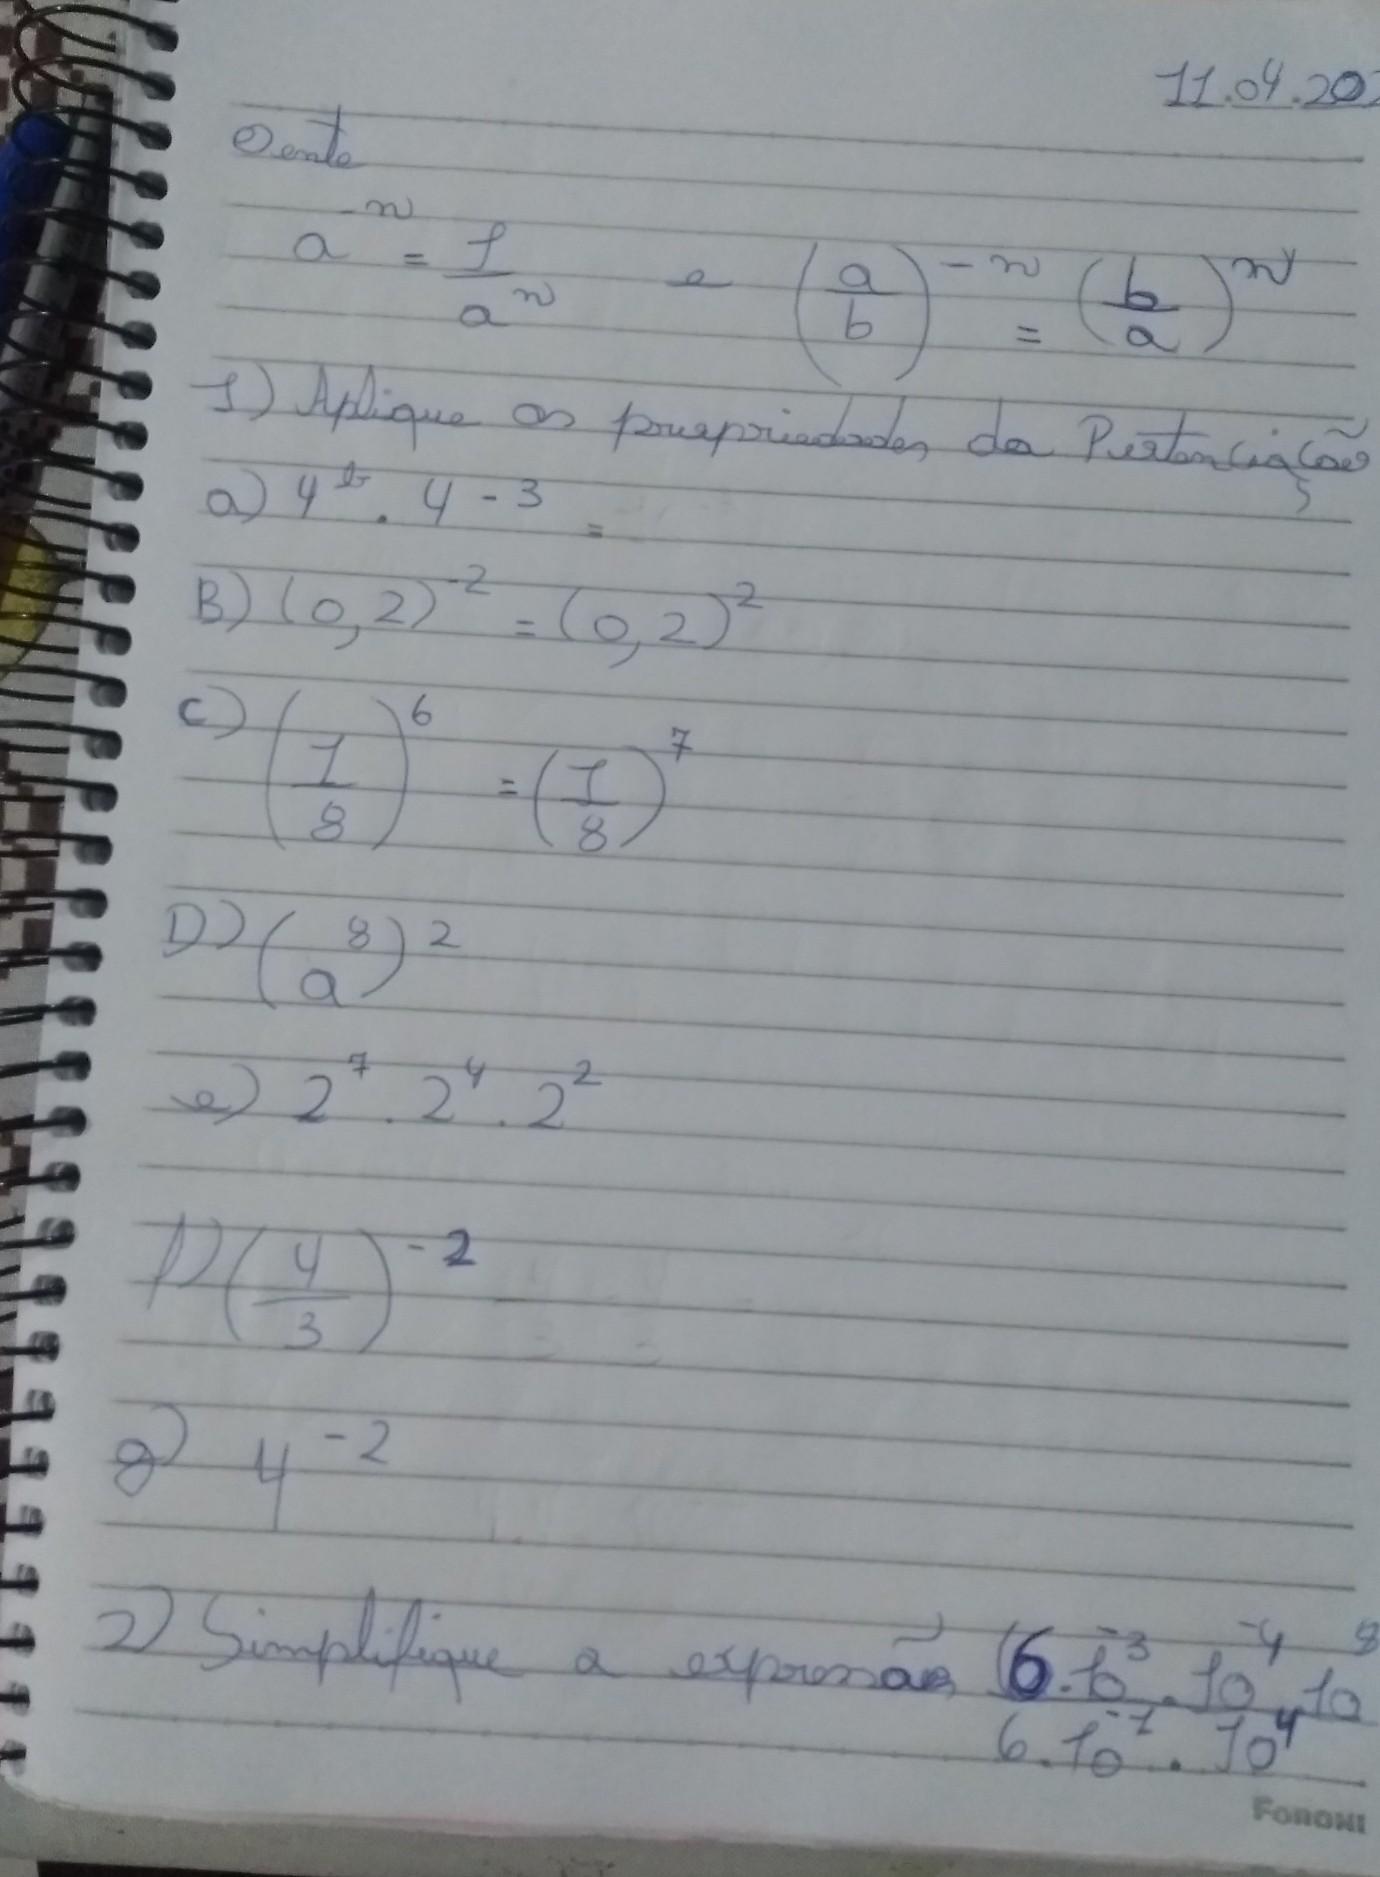 11.04.202
a^-n = 1/a^n e (a/b)^-n = (b/a)^n
1) Aplique as propriedades da Potenciação
a) 4 . 4 - 3 =
B) (0,2)^-2 = (0,2)^2
C) (1/8)^6 = (1/8)^7
D) (a^8)^2
e) 2^7 . 2^4 . 2^2
f) (4/3)^-2
g) 4^-2
2) Simplifique a expressão (6.10^-3 . 10^-4 . 10^8
6.10^-1 . 10^4
FORONI